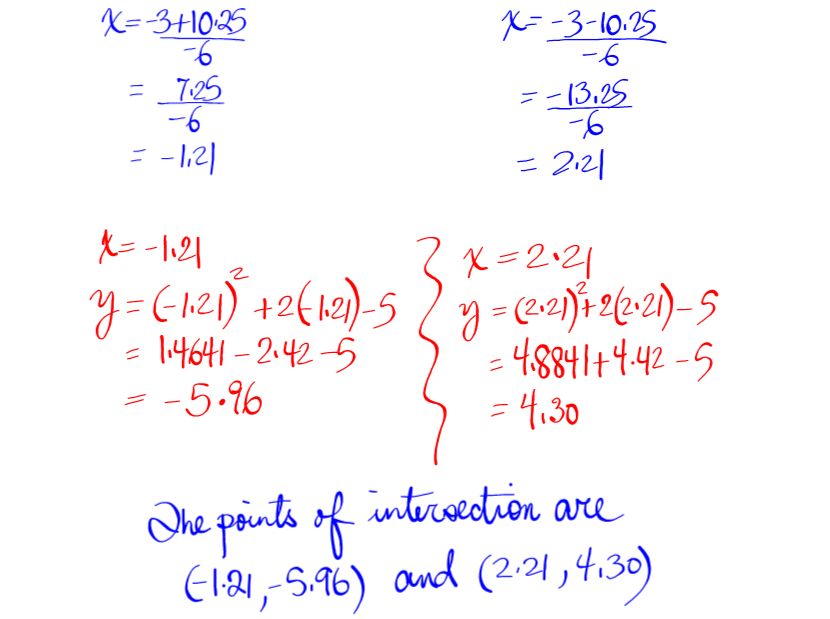 x = -3+10.25 / -6
= 7.25 / -6
= -1.21
x = -3-10.25 / -6
= -13.25 / -6
= 2.21
x = -1.21
y = (-1.21)² + 2(-1.21) - 5
= 1.4641 - 2.42 - 5
= -5.96
x = 2.21
y = (2.21)² + 2(2.21) - 5
= 4.8841 + 4.42 - 5
= 4.30
The points of intersection are
(-1.21, -5.96) and (2.21, 4.30)